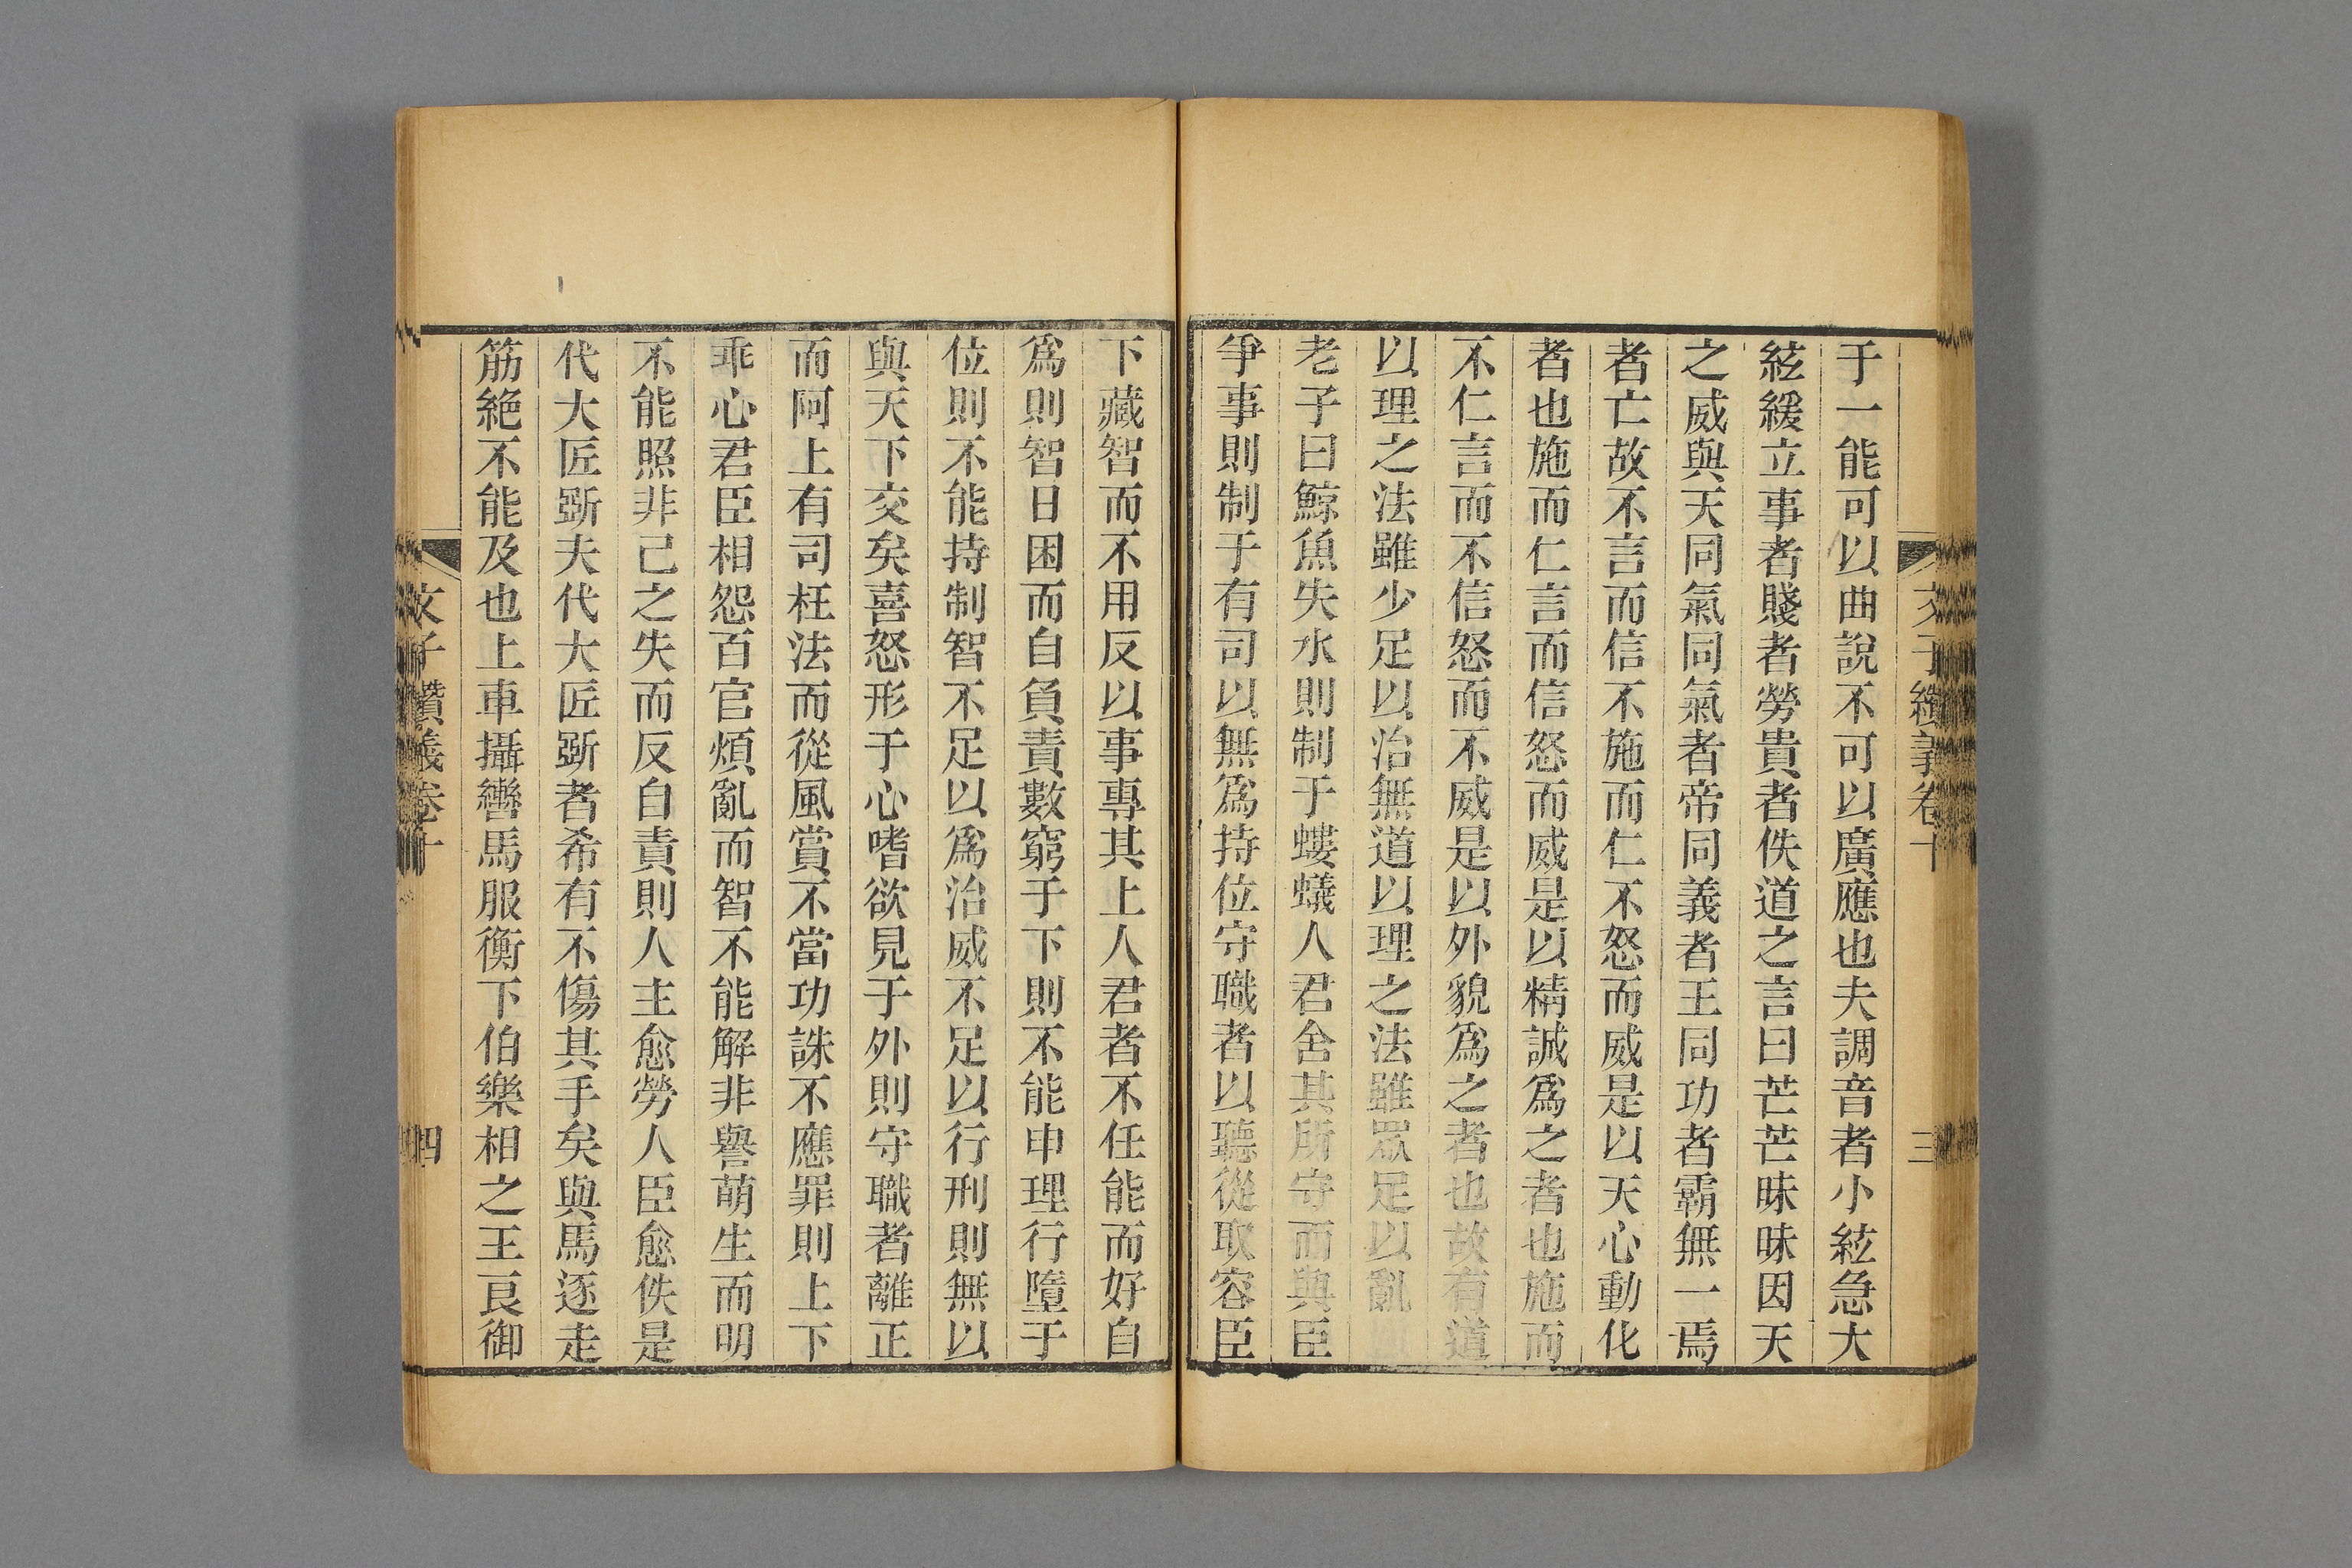 文子纘義卷十
三
于一能可以曲說不可以廣應也夫調音者小絃急大
絃緩立事者賤者勞貴者佚道之言曰芒芒昧昧因天
之威與天同氣同氣者帝同義者王同功者霸無一焉
者亡故不言而信不施而仁不怒而威是以天心動化
者也施而仁言而信怒而威是以精誠爲之者也施而
不仁言而不信怒而不威是以外貌爲之者也故有道
以理之法雖少足以治無道以理之法雖眾足以亂
老子曰鯨魚失水則制于螻蟻人君舍其所守而與臣
爭事則制于有司以無爲持位守職者以聽從取容臣
下藏智而不用反以事專其上人君者不任能而好自
爲則智日困而自負責數窮于下則不能申理行墮于
位則不能持制智不足以爲治威不足以行刑則無以
與天下交矣喜怒形于心嗜欲見于外則守職者離正
而阿上有司枉法而從風賞不當功誅不應罪則上下
乖心君臣相怨百官煩亂而智不能解非譽萌生而明
不能照非己之失而反自責則人主愈勞人臣愈佚是
代大匠斲夫代大匠斲者希有不傷其手矣與馬逐走
筋絕不能及也上車攝轡馬服衡下伯樂相之王良御
文子纘義卷十
四